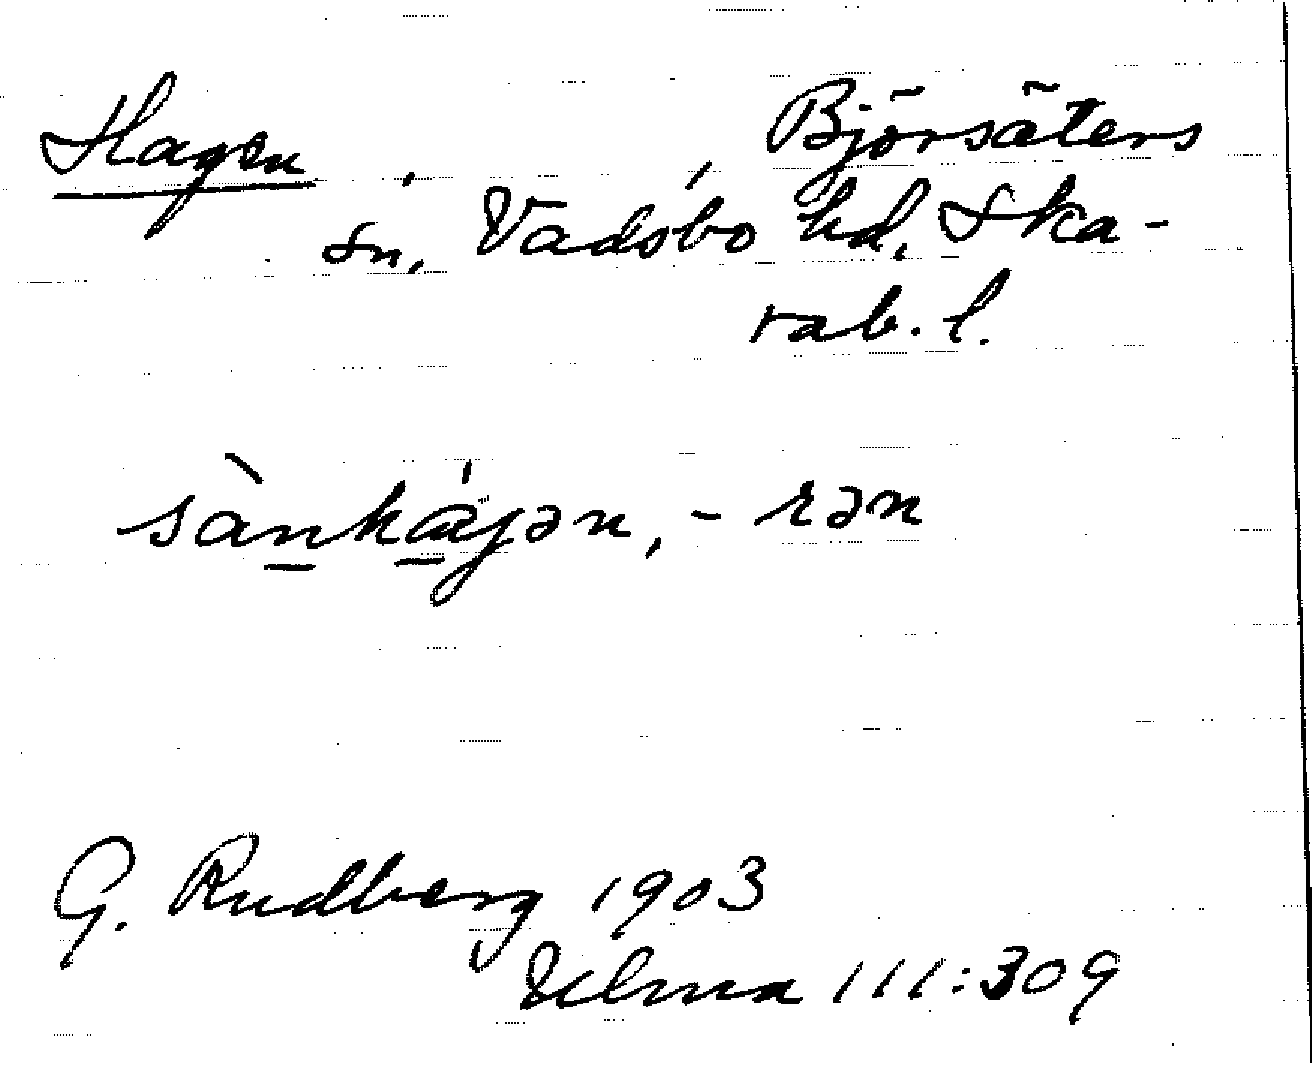 Hagen, , Björsäters
sn, Vadsbo hd, Ska-
rab. l.
sànkájən, - rən
G. Rudberg 1903
Ulma 111:309